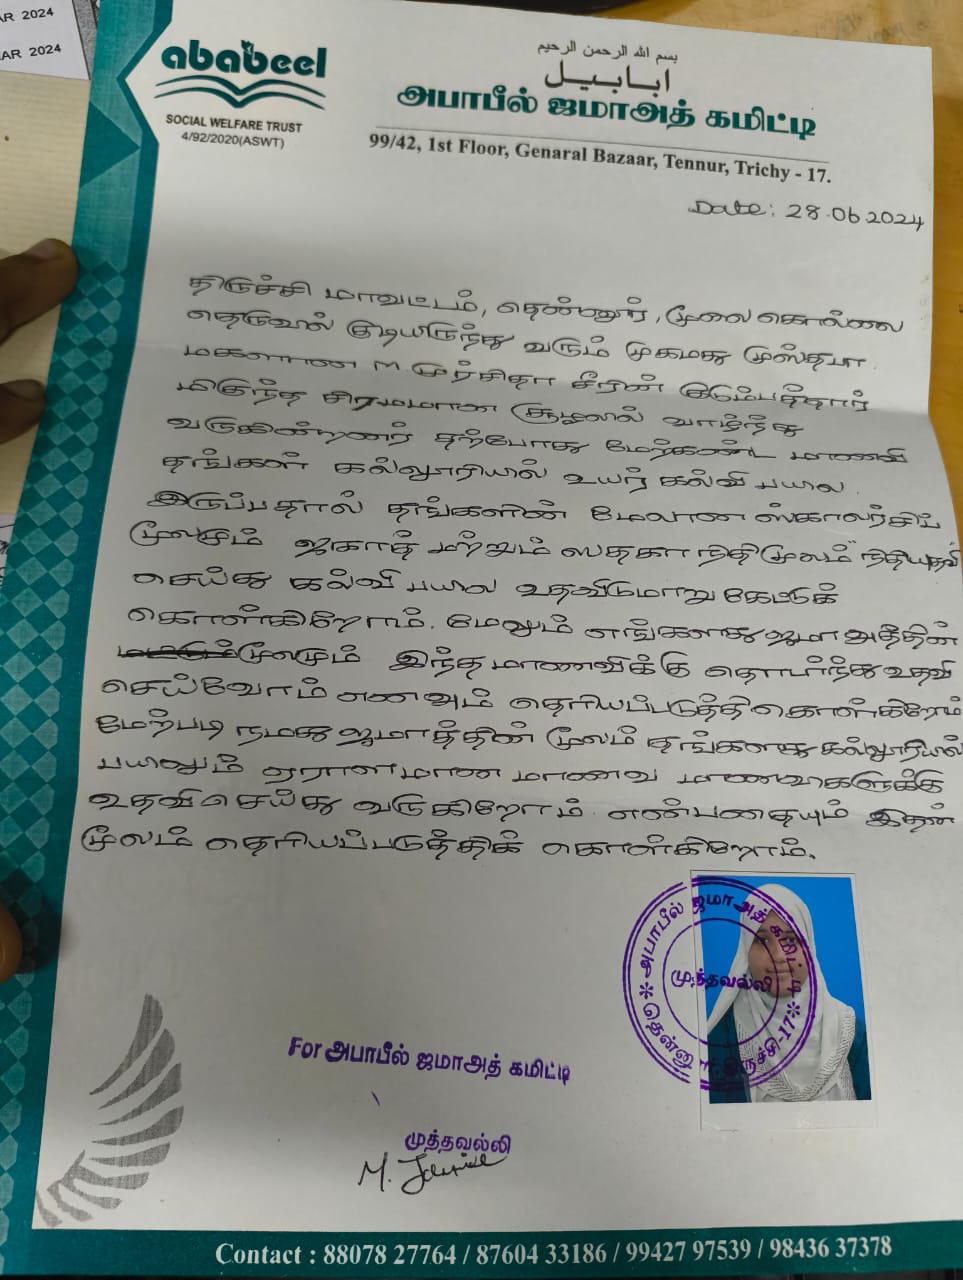 AR 2024
AR 2024
ababeel
SOCIAL WELFARE TRUST
4/92/2020(ASWT)
بسم الله الرحمن الرحيم
ابابيل
அபாபீல் ஜமாஅத் கமிட்டி
99/42, 1st Floor, Genaral Bazaar, Tennur, Trichy - 17.
Date: 28.06 2024
திருச்சி மாவட்டம், தென்னூர், மூலை கொல்லை
தெருவில் குடியிருந்து வரும் முகமது முஸ்தபா
மகளான M முர்சிதா சீரின் குடும்பத்தார்
மிகுந்த சிரமமான சூழலில் வாழ்ந்து
வருகின்றனர் தற்போது மேற்கண்ட மாணவி
தங்கள் கல்லூரியில் உயர் கல்வி பயில
இருப்பதால் தங்களின் மேலான ஸ்காலர்சிப்
மூலமும் ஜகாத் மற்றும் ஸதகா நிதிமூலம் நிதியுதவி
செய்து கல்வி பயில உதவிடுமாறு கேட்டுக்
கொள்கிறோம். மேலும் எங்களது ஜமாஅத்தின்
மூலமும் இந்த மாணவிக்கு தொடர்ந்து உதவி
செய்வோம் எனவும் தெரியப்படுத்தி கொள்கிறோம்
மேற்படி நமது ஜமாத்தின் மூலம் தங்களது கல்லூரியில்
பயிலும் ஏராளமான மாணவ மாணவிகளுக்கு
உதவி செய்து வருகிறோம் என்பதையும் இதன்
மூலம் தெரியப்படுத்திக் கொள்கிறோம்.
அபாபீல் ஜமாஅத் கமிட்டி
முத்தவல்லி
திருச்சி-17
For அபாபீல் ஜமாஅத் கமிட்டி
முத்தவல்லி
Contact : 88078 27764 / 87604 33186 / 99427 97539 / 98436 37378